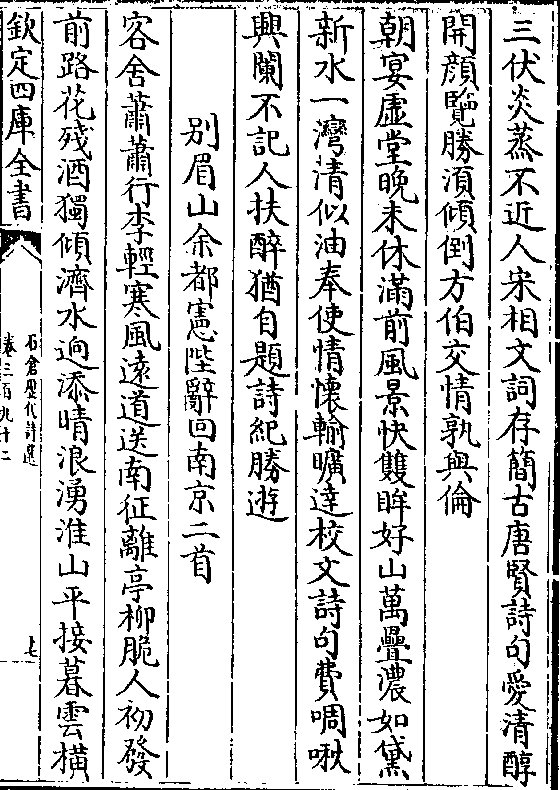 三伏炎蒸不近人宋相文詞存簡古唐賢詩句愛清醇
開顔覽勝須傾倒方伯交情孰與倫
朝宴虛堂晩未休滿前風景快雙眸好山萬疊濃如黛
新水一灣清似油奉使情懷輸曠達校文詩句費啁啾
興闌不記人扶醉猶自題詩紀勝遊
别眉山余都憲陛辭回南京二首
客舍蕭蕭行李輕寒風遠道送南征離亭柳脆人初發
前路花殘酒獨傾濟水逈添晴浪湧淮山平接暮雲橫
欽定四庫全書
石倉歷代詩選
卷三百九十二
七